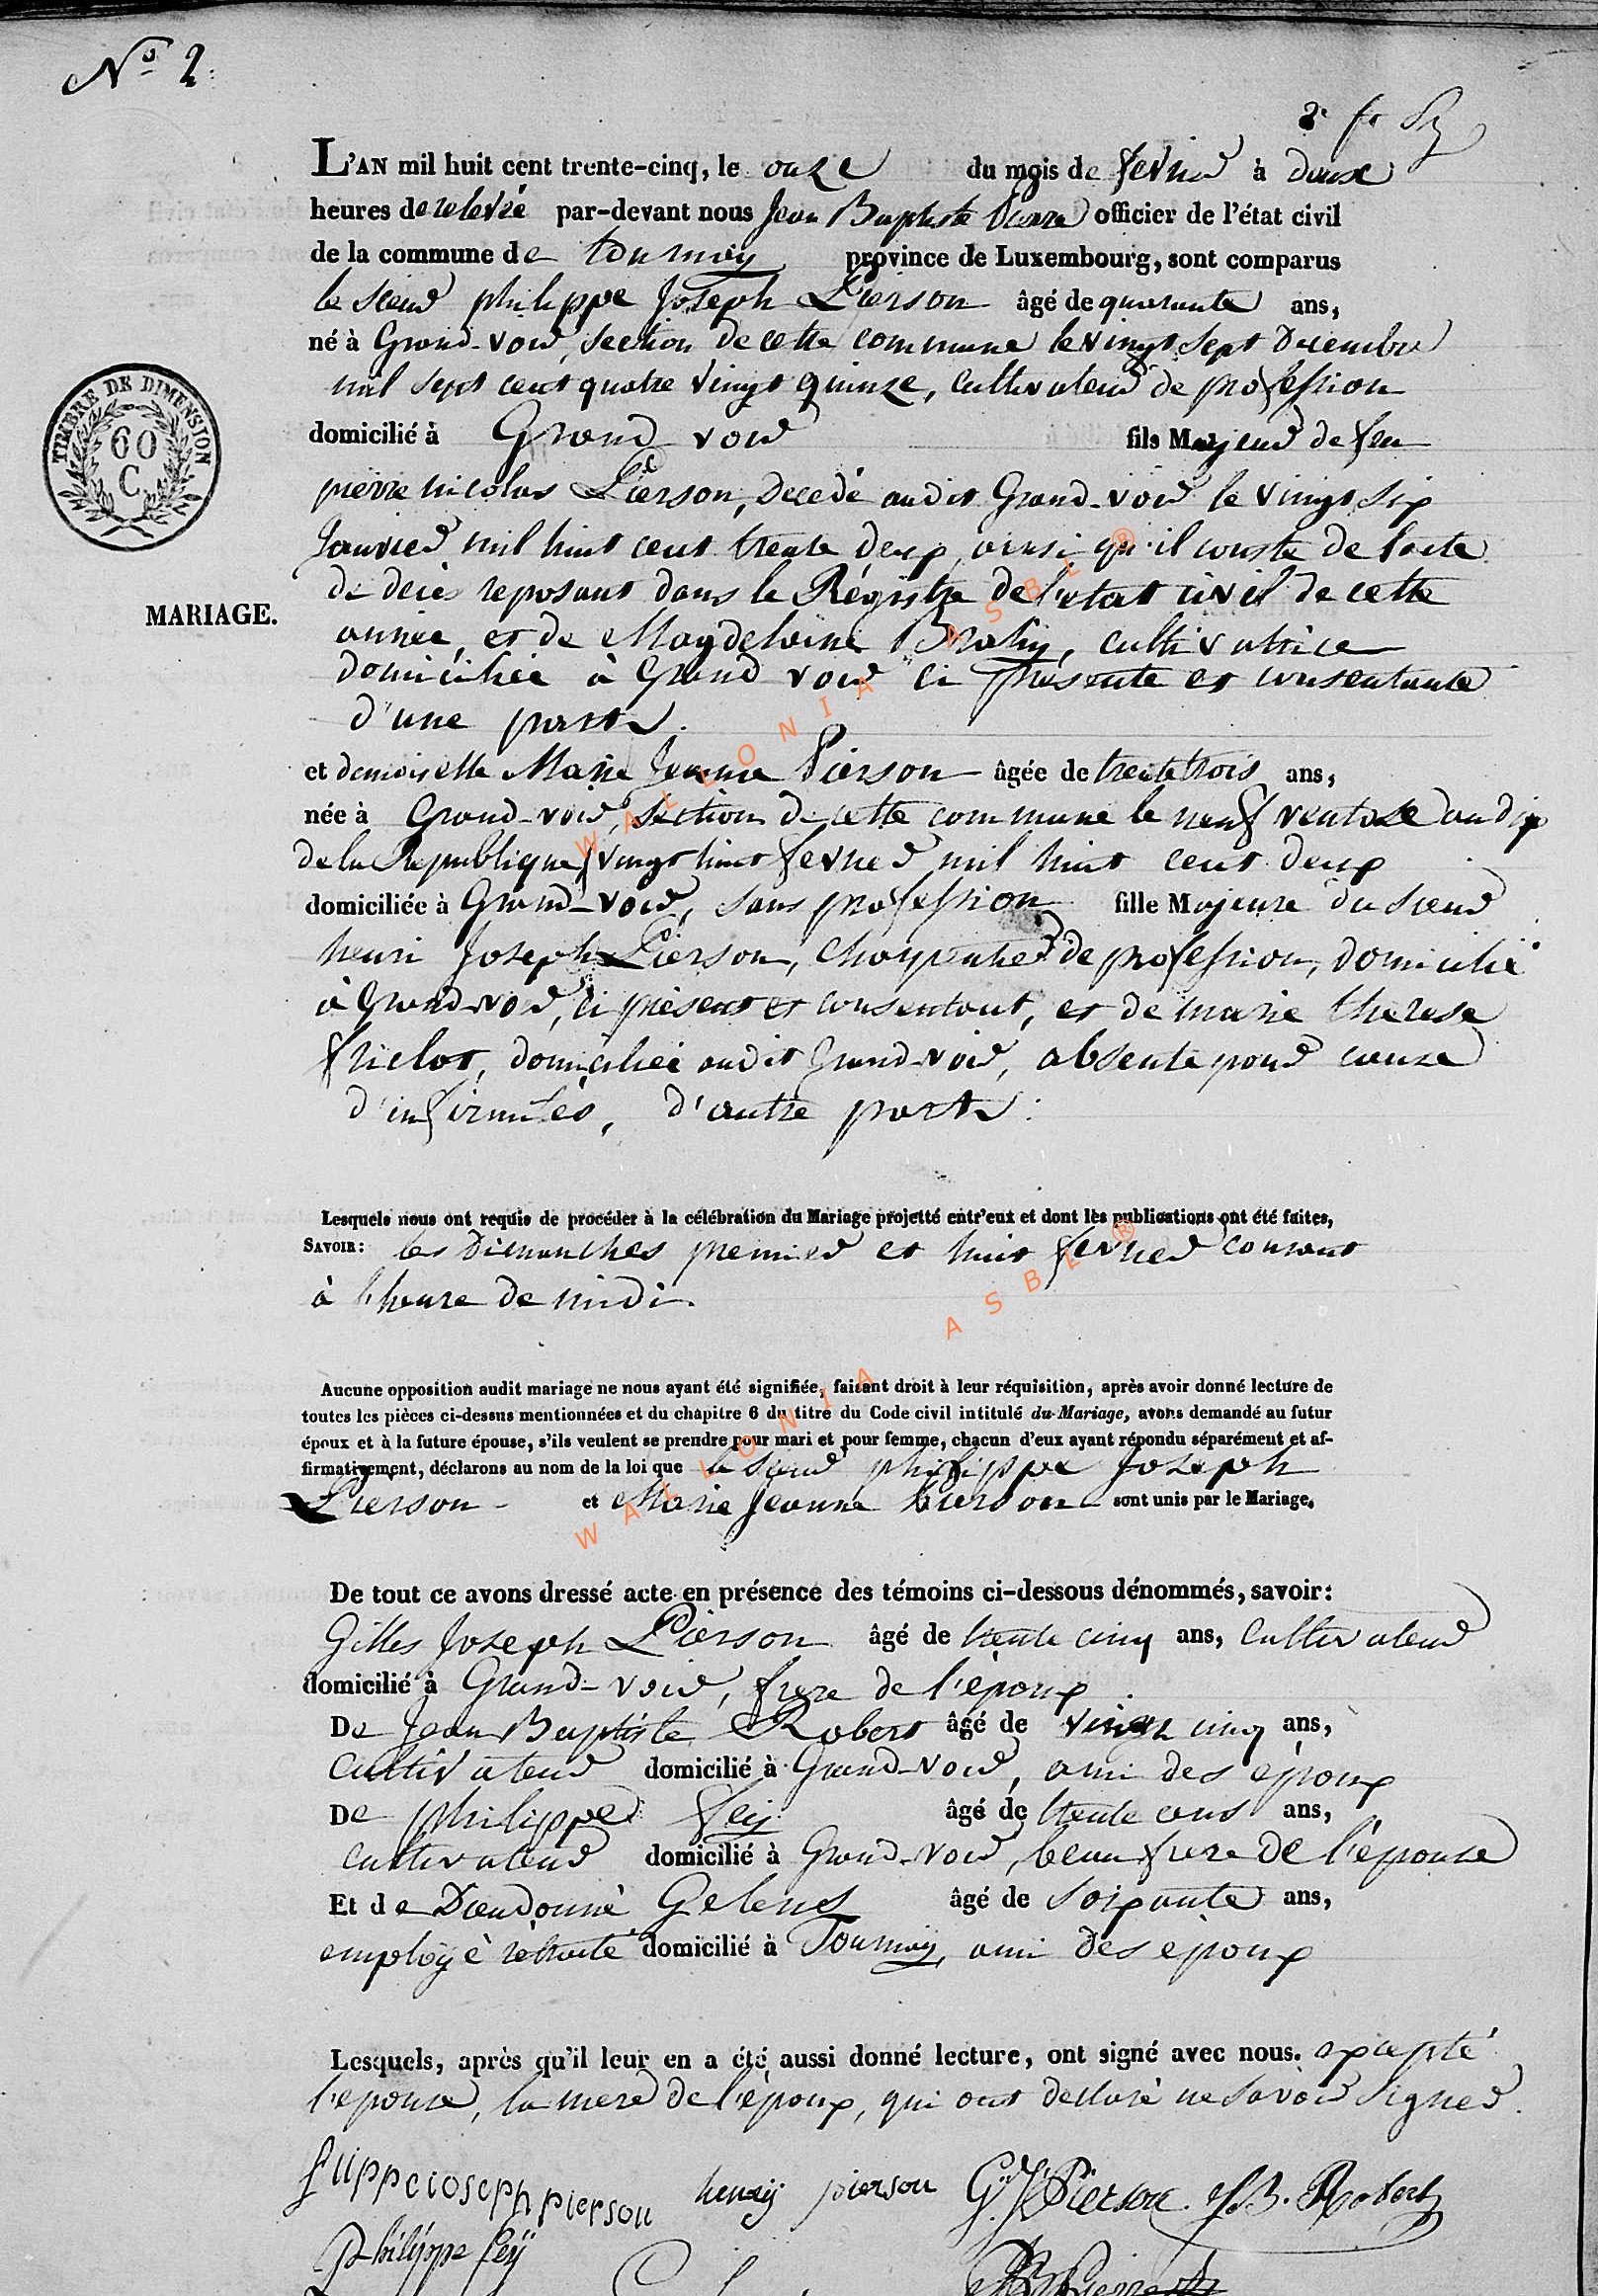 N° 2.
L'AN mil huit cent trente-cinq, le onze du mois de fevrier à deux
heures de relevée par-devant nous Jean Baptiste Pierre officier de l'état civil
de la commune de tournay province de Luxembourg, sont comparus
le Sieur philippe Joseph Pierson âgé de quarante ans,
né à Grand-voir, section de cette commune le vingt sept Decembre
mil sept cent quatre vingt quinze, cultivateur de profession
domicilié à Grand voir fils Majeur de feu
pierre nicolas Pierson, decedé audit Grand-voir le vingt six
Janvier mil huit cent trente deux, ainsi qu'il conste de l'acte
de décès reposant dans le Régistre de l'etat civil de cette
année, et de Magdelaine Mahy, cultivatrice
domiciliée à Grand voir ci presente et consentante
d'une part.
et demoiselle Marie Jeanne Pierson âgée de trente trois ans,
née à Grand-voir, section de cette commune le neuf ventose an dix
de la Republique, vingt huit fevrier mil huit cent deux
domiciliée à Grand-voir, sans profession fille Majeure du Sieur
henri Joseph Pierson, charpentier de profession, domicilié
à Grand-voir, ci présent et consentant, et de marie therese
domiciliée audit Grand-voir, absente pour cause
d'infirmités, d'autre part.
MARIAGE.
TIMBRE DE DIMENSION
60
C.
Lesquels nous ont requis de procéder à la célébration du Mariage projetté entr'eux et dont les publications ont été faites,
SAVOIR: les Dimanches premier et huit fevrier courant
à l'heure de midi.
Aucune opposition audit mariage ne nous ayant été signifiée, faisant droit à leur réquisition, après avoir donné lecture de
toutes les pièces ci-dessus mentionnées et du chapitre 6 du titre du Code civil intitulé du Mariage, avons demandé au futur
époux et à la future épouse, s'ils veulent se prendre pour mari et pour femme, chacun d'eux ayant répondu séparément et af-
firmativement, déclarons au nom de la loi que le Sieur philippe Joseph
Pierson et Marie Jeanne Pierson sont unis par le Mariage.
De tout ce avons dressé acte en présence des témoins ci-dessous dénommés, savoir:
Gilles Joseph Pierson âgé de trente cinq ans, cultivateur
domicilié à Grand-voir, frere de l'époux
De Jean Baptiste Robert âgé de vingt cinq ans,
cultivateur domicilié à Grand-voir, ami des époux
De philippe feÿ âgé de trente ans,
cultivateur domicilié à Grand-voir, beau frere de l'épouse
Et de Dieudonné Gelens âgé de soixante ans,
employé retraité domicilié à Tournay, ami des époux
Lesquels, après qu'il leur en a été aussi donné lecture, ont signé avec nous. excepté
l'epouse, la mere de l'époux, qui ont declaré ne savoir signer.
filippe ioseph pierson henry pierson G. J. Pierson J. B. Robert
Philippe feÿ
WALLONIA ASBL ®
WALLONIA ASBL ®